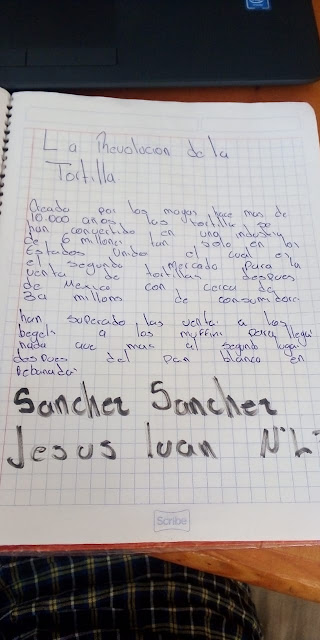 La Revolucion de la
Tortilla
Creado por los mayas hace mas de
10.000 años las tortilla se
han convertido en una industria
de 6 millones tan solo en los
Estados Unidos el cual es
el segundo mercado para la
venta de tortillas despues
de Mexico con cerca de
32 millons de consumidore
han superado las venta a los
begels a los myffins para llegar
nada que mas al segundo lugar
despues del pan blanco en
rebanadas
Sancher Sancher
Jesus Iuan N°L°
Scribe